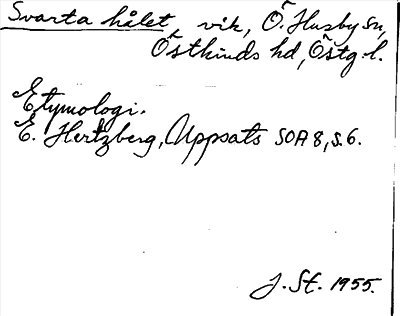 Svarta hålet vik, Ö. Husby sn,
Östkinds hd, Östg. l.
Etymologi.
E. Hertzberg, Uppsats SOA 8, s. 6.
J. St. 1955.